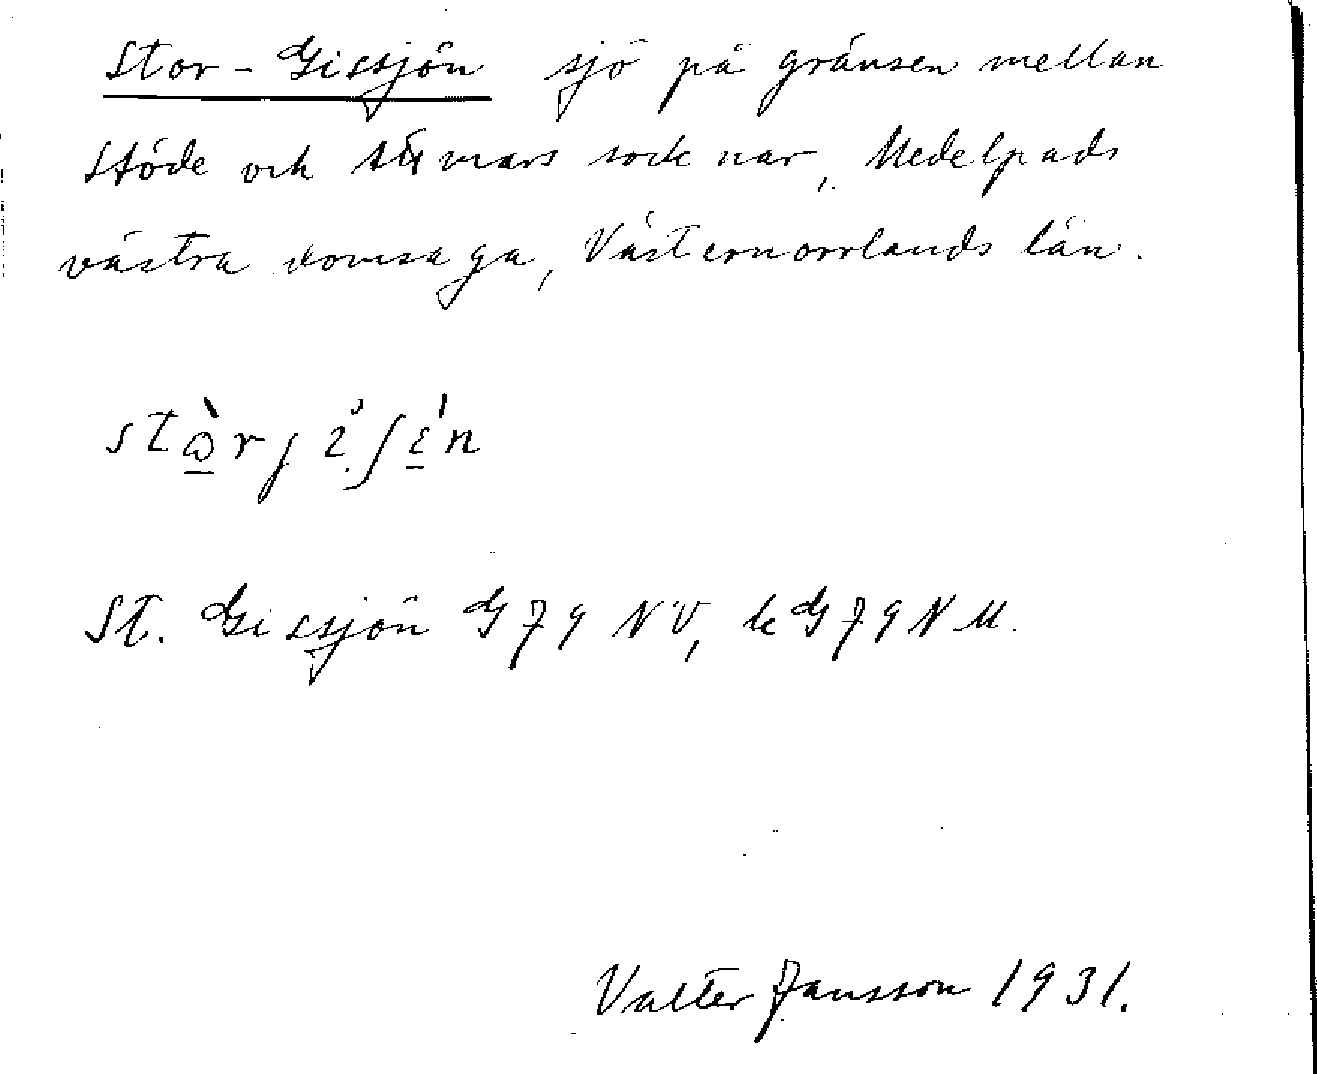 Stor-Gissjön sjö på gränsen mellan
Stöde och Attmars socknar, Medelpads
västra domsaga, Västernorrlands län.
St. Gissjön GJ9 NV, kGJ9NM.
Valter Jansson 1931.